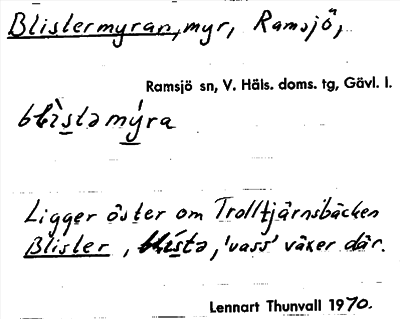 Blistermyran, myr, Ramsjö,
Ramsjö sn, V. Häls. doms. tg, Gävl. l.
blìstamýra
Ligger öster om Trolltjärnsbäcken
Blister, blísta, 'vass' växer där.
Lennart Thunvall 1970.